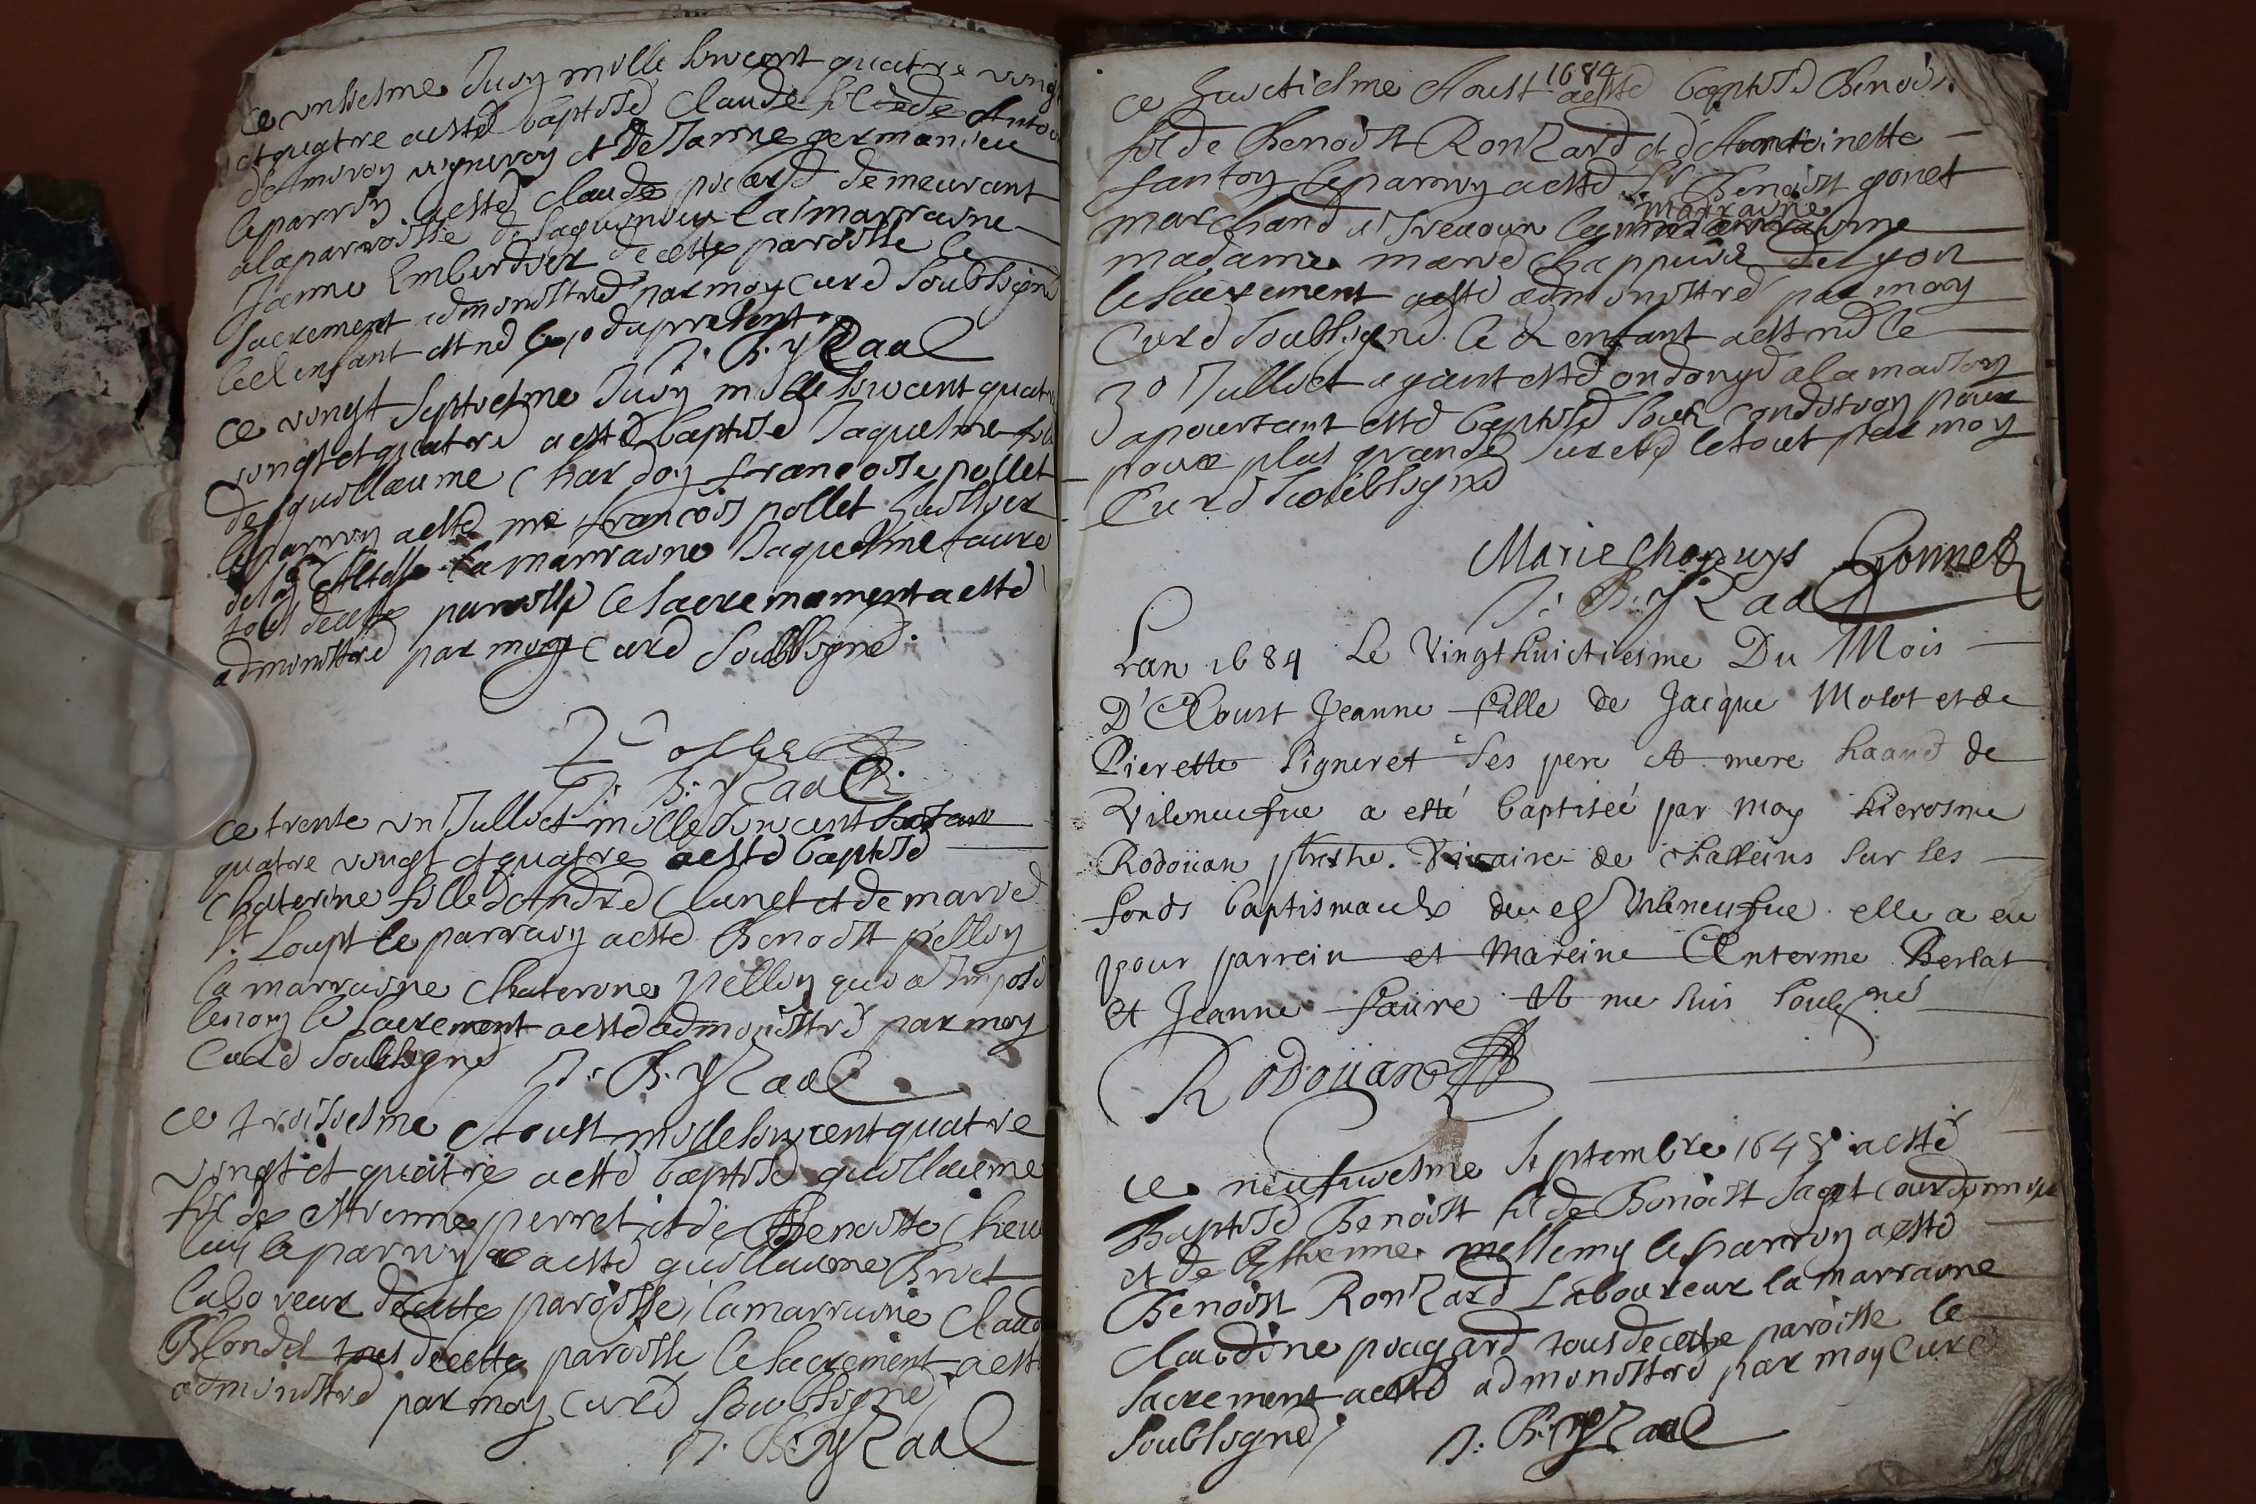 ce onsiesme Juin mille sixcent quatre vingt
et quatre a esté baptisé Claude fil de Antoi
vigneron et de Janne germanieu
le parrin a esté Claude picard demeurant
a la parroisse de la marraine
Janne Emberdier de cette paroisse le
sacrement administré par moy curé soubsigné
le enfant est né le 10 du present
J. B.
ce vingt septiesme Juin mille sixcent quatre
vingt et quatre a esté baptisé Jaquesme fille
de guillaume Chardon francoise pollet
le parrin a esté me francois pollet huissier
la marraine Jaquesme faure
tous de cette paroisse le sacremament a esté
administré par moy curé soubsigné.
J. B.
ce trente un Julliet mille sixcent
quatre vingt et quatre a esté baptisé
Chaterine fille d'André Clunet et de marie
St Loupt le parrain a esté Benoist pellin
la marraine Chaterine pellin qui a Imposé
le nom le sacrement a esté administré par moy
Curé soubsigné J. B.
ce troisiesme Aoust mille sixcent quatre
vingt et quatre a esté baptisé guillaume
fil de estienne perret et de Benoiste
le parrin a esté guillaume
laboureur de cette paroisse, la marraine Claud
Blondel tous de cette paroisse le sacrement a esté
administré par moy curé soubsigné
J. B.
1684
ce huictiesme Aoust a esté baptisé Benoist
fil de Benoist Ronzard et d'Antoinette
fanton le parrin a esté Sr Benoist gonet
marchand a la
marraine
madame marie Chappuis de Lyon
le sacrement a esté administré par moy
Curé soubsigné le enfant a esté né le
30 Julliet ayant esté ondoyé a la maison
a pourtant esté baptisé soub condition pour
pour plus grande sureté le tout par moy
Curé soubsigné
Marie Chapuys Gonnet
J. B.
Lan 1684 Le Vingthuictiesme Du Mois
D'Aoust Jeanne fille de Jacque Molot et de
Pierette Pigneret ses pere et mere de
Vileneufue a esté baptiseé par moy hierosme
Rodoüan pbrestre. Vicaire de Chaleins sur les
fonds baptismaulx de Vileneufue. elle a eu
pour parrein et Mareine Anterme Berlat
et Jeanne faure et me suis soulsgné
Rodoüan
ce neufuiesme septembre 1648 a esté
Baptisé Benoist fil de Benoist sapet Courdonnier
et de Estienne mellemy le parrin a esté
Benoist Ronzard Laboureur la marraine
Claudine pougard tous de cette paroisse le
sacrement a esté administré par moy Curé
soubsigné J. B.